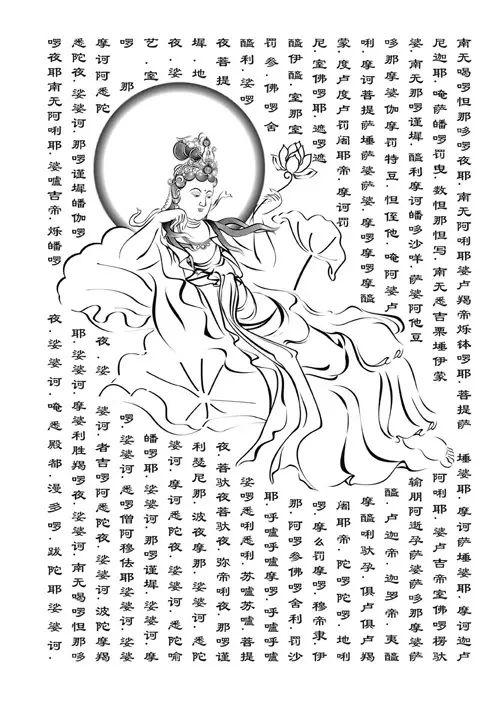 南无喝啰怛那哆啰夜耶·南无阿唎耶婆卢羯帝烁钵啰耶·菩提萨埵婆耶·摩诃萨埵婆耶·摩诃迦卢
尼迦耶·唵萨皤啰罚曳·数怛那怛写·南无悉吉栗埵伊蒙阿唎耶·婆卢吉帝室佛啰楞驮
婆·南无那啰谨墀·醯利摩诃皤哆沙咩·萨婆阿他豆输朋阿逝孕萨婆萨
哆那摩婆伽摩罚特豆·怛侄他·唵阿婆卢醯·卢迦帝·迦罗帝·夷醯
唎·摩诃菩提萨埵萨婆萨婆·摩啰摩啰摩醯摩醯唎驮孕·俱卢俱卢羯
蒙·度卢度卢罚阇耶帝·摩诃罚阇耶帝·陀啰陀啰·地唎
尼·室佛啰耶·遮啰遮啰·摩么罚摩啰·穆帝隶·伊
醯伊醯·室那室那·阿啰参佛啰舍利·罚沙
罚参·佛啰舍耶·呼嚧呼嚧摩啰·呼嚧呼嚧
醯利·娑啰娑啰悉利悉利·苏嚧苏嚧·菩提
夜菩提夜·菩驮夜菩驮夜·弥帝利夜·那啰谨
墀·地利瑟尼那·波夜摩那·娑婆诃·悉陀
夜·娑婆诃·摩诃悉陀夜·娑婆诃·悉陀喻
艺·室皤啰耶·娑婆诃·那啰谨墀·娑婆诃·摩
啰那啰·娑婆诃·悉啰僧阿穆佉耶娑婆诃·娑婆
摩诃阿悉陀夜·娑婆诃·者吉啰阿悉陀夜·娑婆诃·波陀摩
悉陀夜·娑婆诃·那啰谨墀皤伽啰耶·娑婆诃·摩婆利胜羯啰夜·娑婆诃·南无喝啰怛那哆
啰夜耶南无阿唎耶·婆嚧吉帝·烁皤啰夜·娑婆诃·唵悉殿都·漫多啰·跋陀耶娑婆诃·